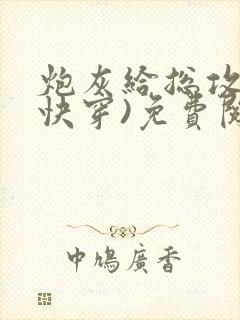 炮灰給総攻
快穿)免費閱
中鳩廣香